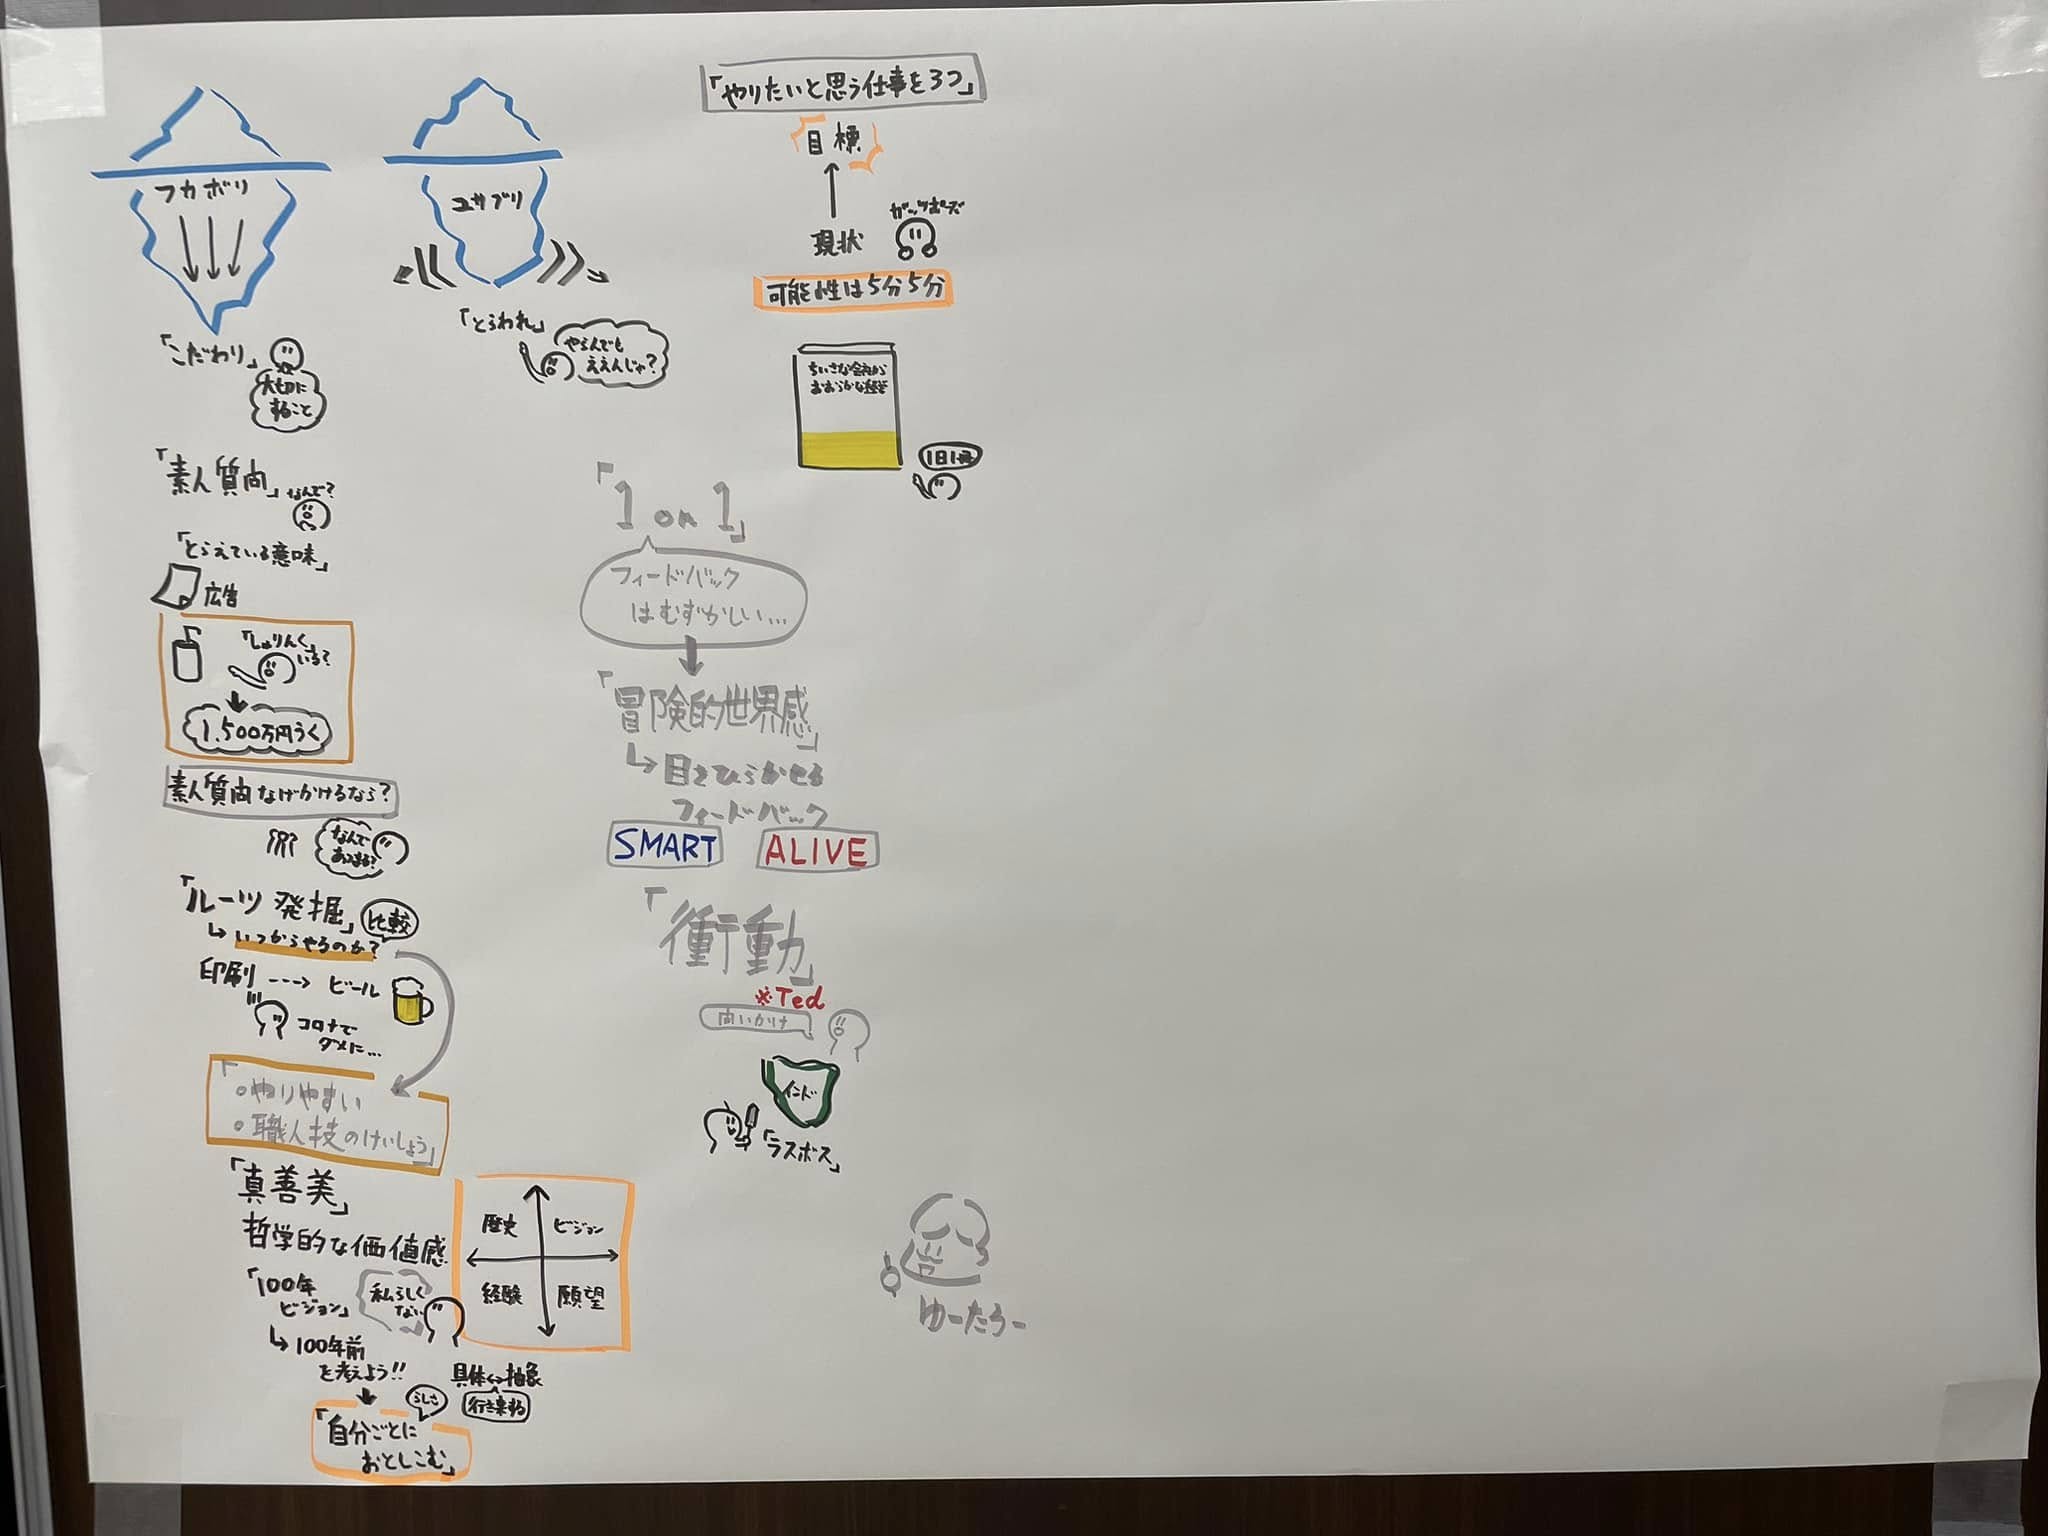 フカボリ
「こだわり」
大切に
すること
「素人質問」
なんで?
「とらえている意味」
広告
「しゅりんく」
いる?
1,500万円うく
素人質問なげかけるなら?
なんで
あつまる?
「ルーツ発掘」
比較
↳いつからやるのか?
印刷 ---→ ビール
コロナで
ダメに…
「
○やりやすい
○職人技のけいしょう」
「真善美」
哲学的な価値感
「100年
ビジョン」
私らしく
ない
↳100年前
を考えよう!!
らしさ
「自分ごとに
おとしこむ」
歴史
ビジョン
経験
願望
具体↔抽象
行き来する
ユサブリ
「とらわれ」
やらんでも
ええんじゃ?
「1 on 1」
フィードバック
はむずかしい…
「冒険的世界感」
↳目をひらかせる
フィードバック
SMART
ALIVE
「衝動」
※Ted
問いかけ
インド
「ラスボス」
「やりたいと思う仕事を3つ」
目標
↑
現状
ガッツポーズ
可能性は5分5分
ちいさな会社の
おおらかな経営
1日1冊
ゆーたろー